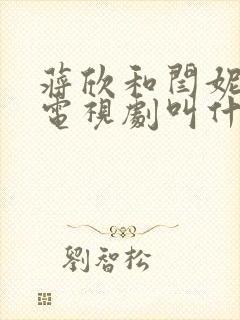 蔣欣和閆妮
電視劇叫什
劉智松